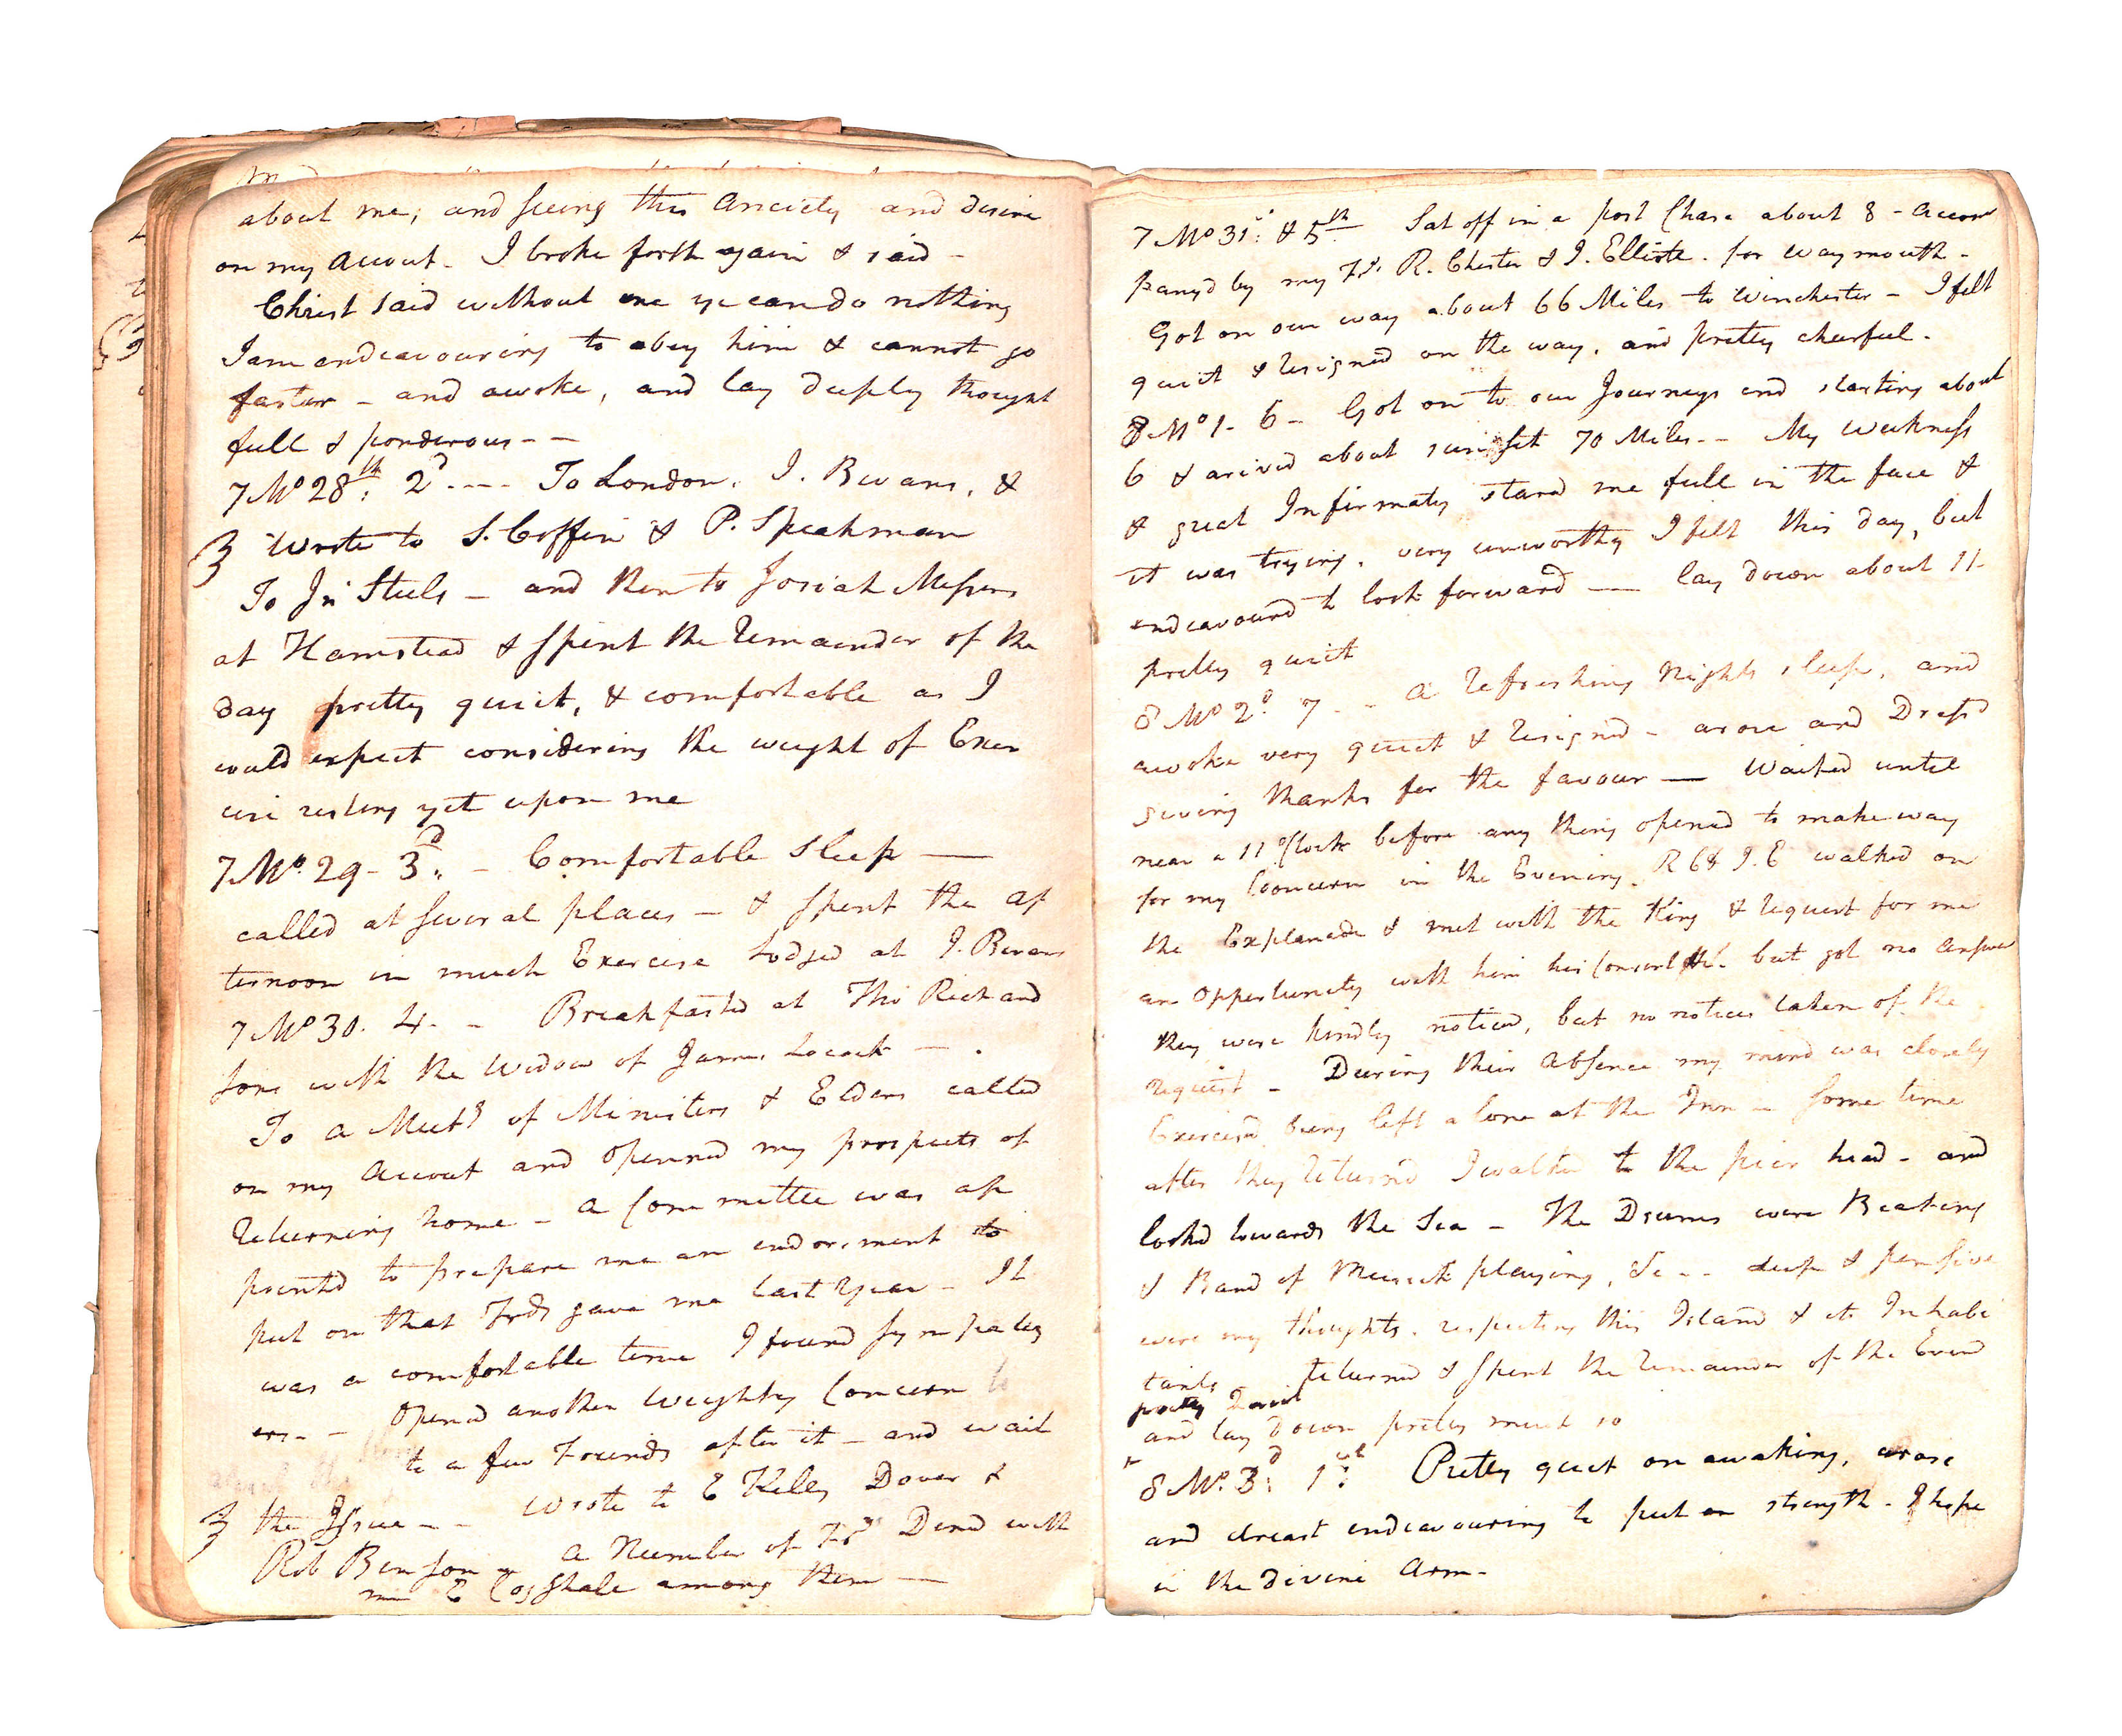 about me; and seeing this anxiety and desire
on my accout - I broke forth again & said -
Christ said without me ye can do nothing
I am endeavouring to obey him & cannot go
faster - and awoke, and lay deeply thought
full & ponderous - -
7 Mo 28th: 2d - - - To London. J. Bevans, &
Wrote to S. Coffin & P. Speakman
To Jn Steels - and then to Josiah Messers
at Hamstead & spent the remainder of the
day pretty quiet, & comfortable as I
could expect considering the weight of Exer
cise resting yet upon me
7 Mo. 29 - 3d. - Comfortable Sleep —
called at several places - & spent the af
ternoon in much Exercise Lodged at J. Bevans
7 Mo 30. 4. - Breakfasted at Tho Richard
sons with the widow of James - .
To a Meetg of Ministers & Elders called
on my accout and opened my prospects of
returning home - a Committee was ap
pointed to prepare me an endorsment to
put on that Frds gave me last year - It
was a comfortable time I found sympathy
- - Opened another weighty Concern to
to a few Friends after it - and wait
the Issue - - wrote to E Kelly Dover &
Rob Benson - a Number of Fds Dined with
me E Cogshale among them —
7 Mo 31st: & 5th Sat off in a post Chase about 8 - accom
panyd by my Fds. R. Chester & J. Elliote. for Waymouth -
Got on our way about 66 Miles to Winchester - I felt
quiet & resigned on the way, and pretty cheerful.
8 Mo 1 - 6 - Got on to our Journeys end starting about
6 & arived about sunset 70 Miles - - My weakness
& great Infirmaty stared me full in the face &
it was trying. very unworthy I felt this day, but
endeavourd to look forward — lay down about 11 -
pretty quiet
8 Mo 2d: 7 - - a refreshing nights sleep, and
awoke very quiet & resigned - arose and Dresd
giving thanks for the favour — Waited until
near a 11 oClock before any thing opened to make way
for my Concern in the Evening. R C & J. E walked on
the Explanade & met with the King & request for me
an opportunity with him his Consort but got no answer
they were kindly noticed, but no notices taken of the
request - During their absence my mind was closely
Exercised being left alone at the Inn - some time
after they returned I walked to the pier head - and
lookd towards the Sea - The Drums were Beating
& Band of Musick playing, &c - - deep & pensive
were my thoughts. respecting this Island & its Inhabi
tants returned & spent the remainder of the Even
pretty Quiet
and lay down pretty much so
8 Mo. 3d: 1st: Pretty quiet on awaking, arose
and dreast endeavouring to put on strength - I hope
in the divine Arm -